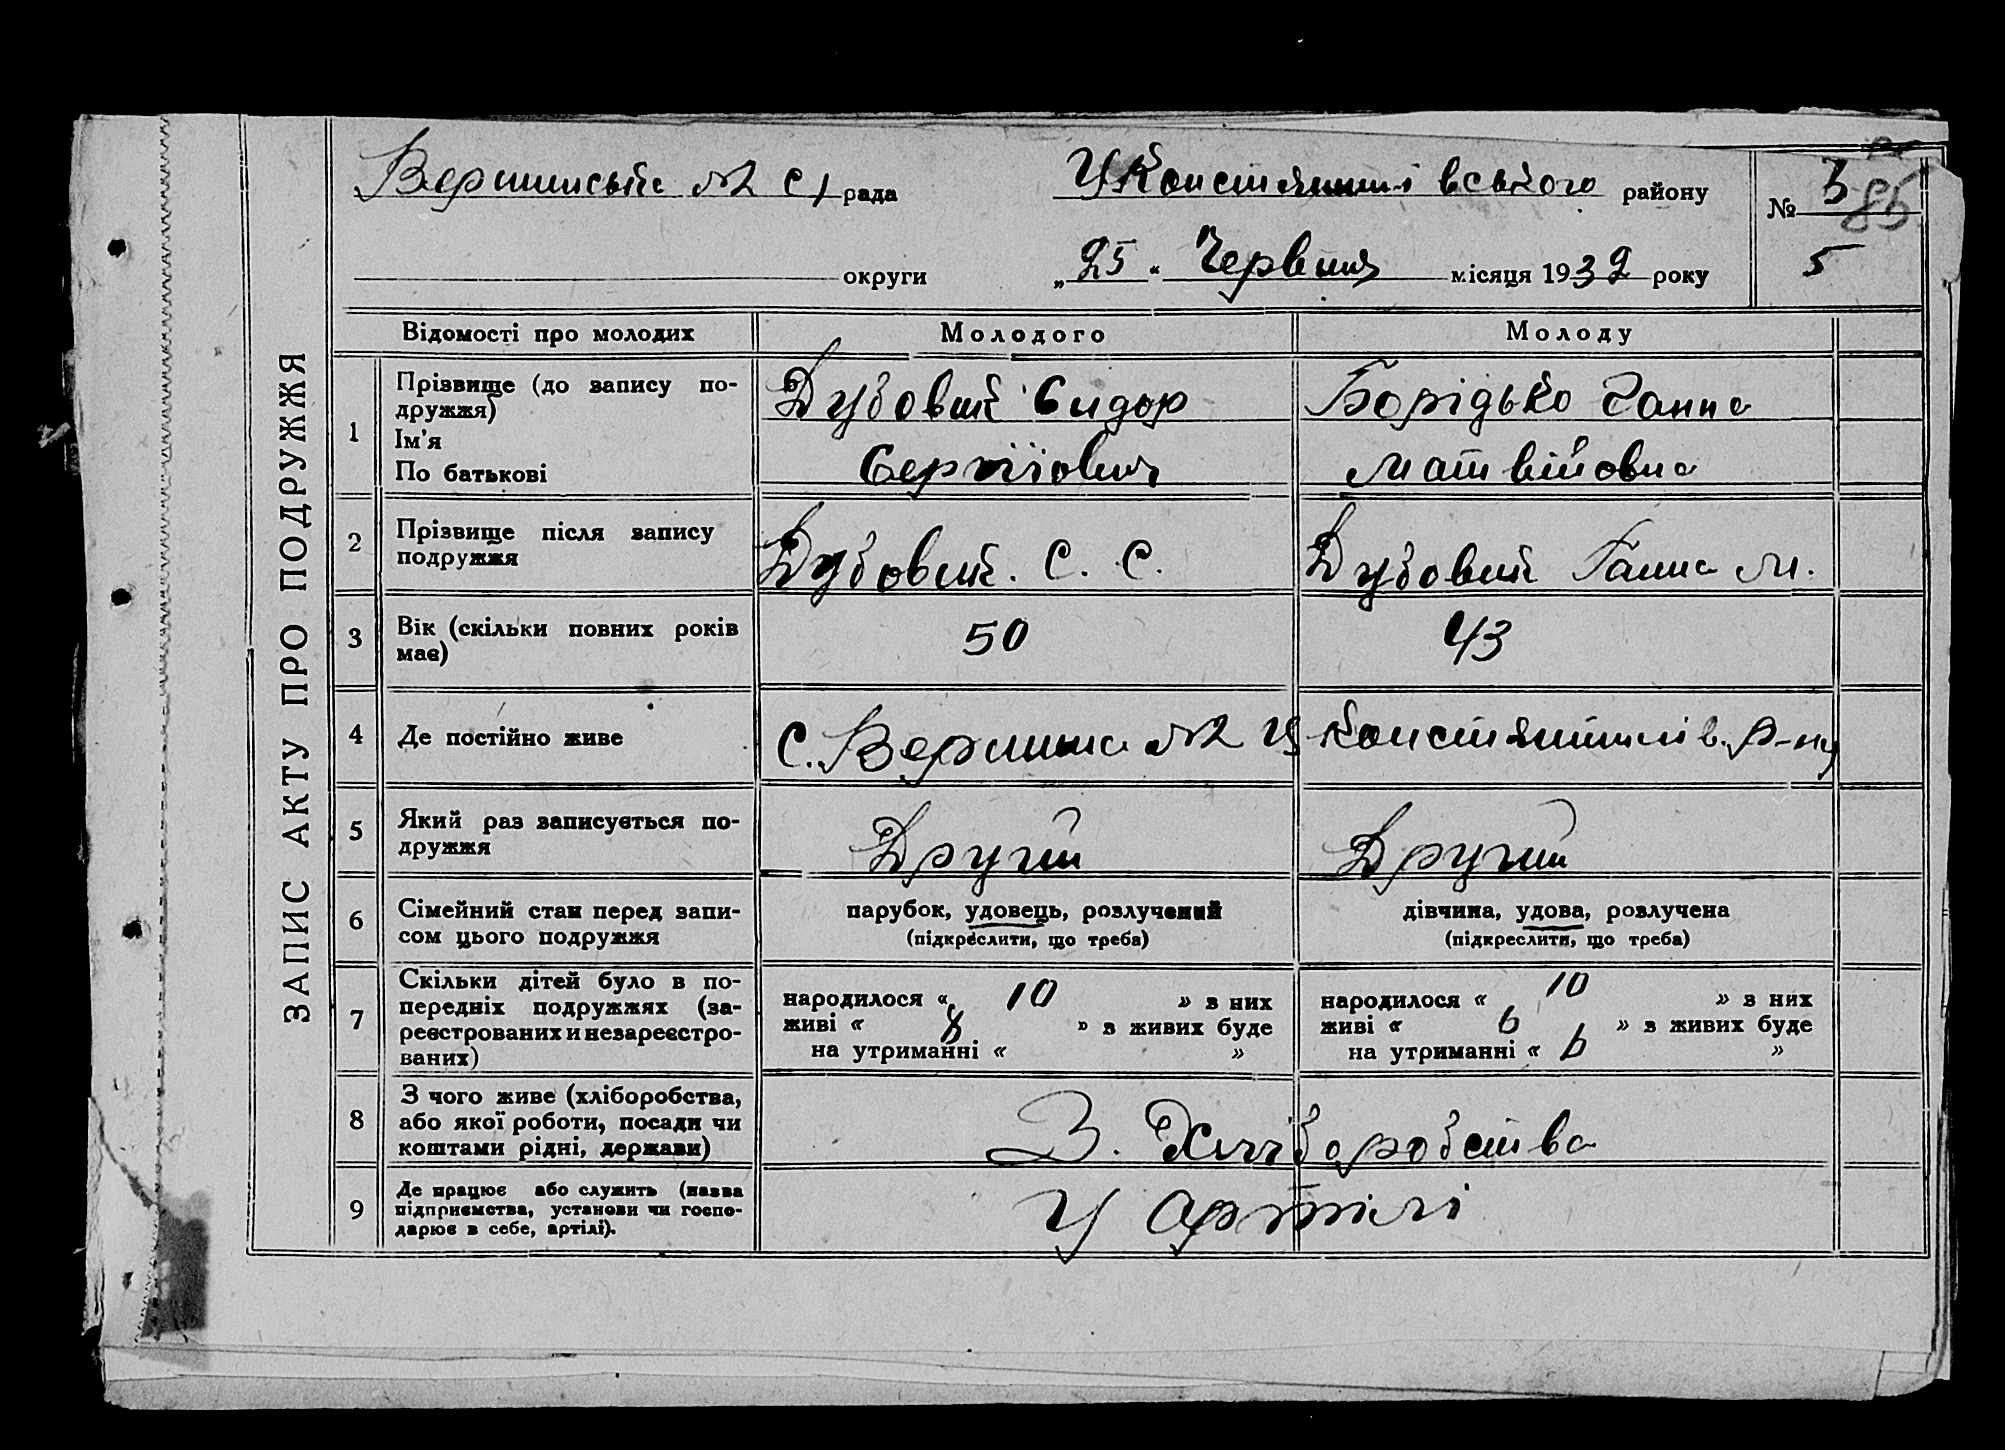 Вершинська №2 с/рада У Констянтинівського району № 3
86
округи „25“ Червня місяця 1932 року 5
ЗАПИС АКТУ ПРО ПОДРУЖЖЯ
Відомості про молодих Молодого Молоду
1 Прізвище (до запису по-
дружжя)
Ім'я
По батькові
Дубовий Сидор
Сергійович
Борідько Ганна
Матвійовна
2 Прізвище після запису
подружжя
Дубовий. С. С.
Дубовий Ганна М.
3 Вік (скільки повних років
має)
50
43
4 Де постійно живе
С. Вершина №2 У Констянтинів. р-ну
5 Який раз записується по-
дружжя
Другий
Другий
6 Сімейний стан перед запи-
сом цього подружжя
парубок, удовець, розлучений
(підкреслити, що треба)
дівчина, удова, розлучена
(підкреслити, що треба)
7 Скільки дітей було в по-
передніх подружжях (за-
реєстрованих и незареєстро-
ваних)
народилося « 10 » з них
живі « 8 » з живих буде
на утриманні « »
народилося « 10 » з них
живі « 6 » з живих буде
на утриманні « 6 »
8 З чого живе (хліборобства,
або якої роботи, посади чи
коштами рідні, держави)
З. Хліборобства
9 Де працює або служить (назва
підприємства, установи чи госпо-
дарює в себе, артілі).
У артілі